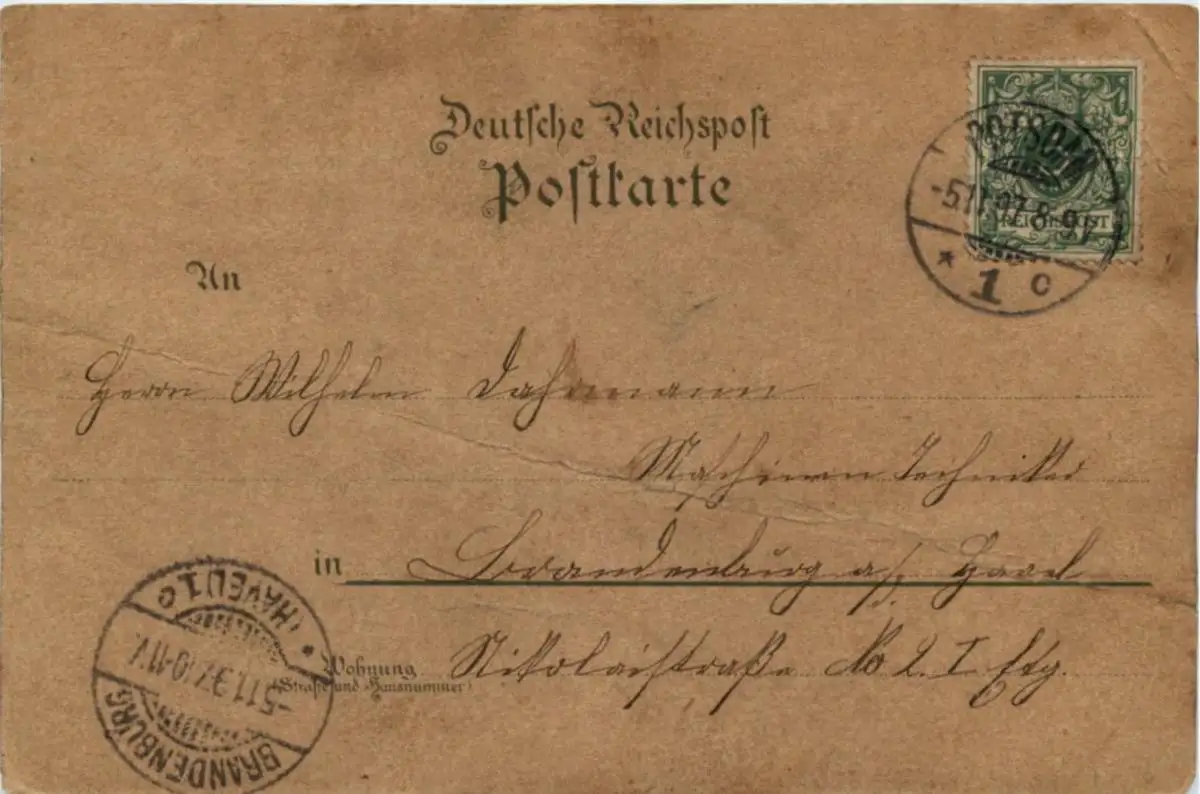 Deutsche Reichspost
Postkarte
POTSDAM
-5.11.97.8-9V.
REICHSPOST
* 1 c
An
Herrn Wilhelm Dahrmann
Maschinen Techniker
in Brandenburg a/ Havel
Wohnung Nikolaistraße No 2 I Etg.
(Straße und Hausnummer)
BRANDENBURG
-5.11.97.10-11V.
* (HAVEL) 1 c